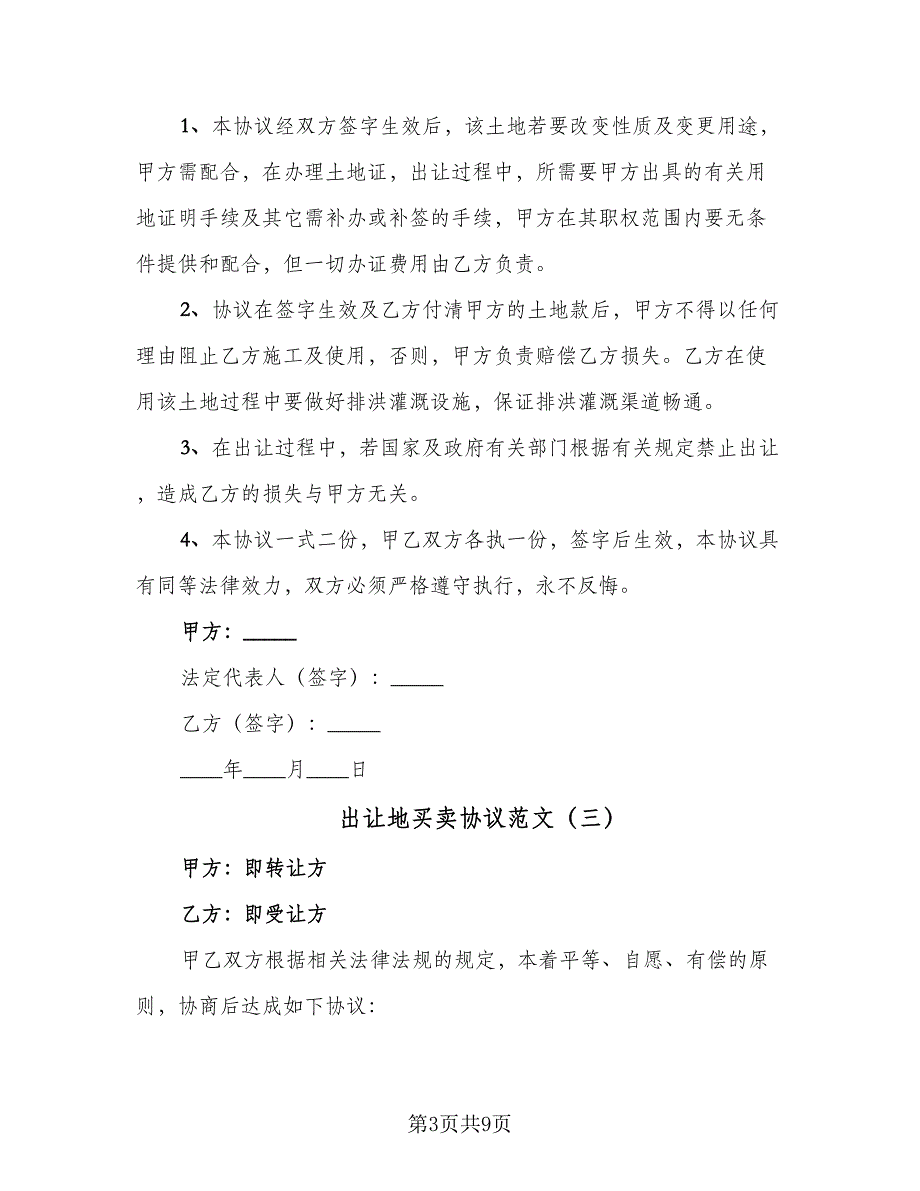 1、本协议经双方签字生效后，该土地若要改变性质及变更用途，
甲方需配合，在办理土地证，出让过程中，所需要甲方出具的有关用
地证明手续及其它需补办或补签的手续，甲方在其职权范围内要无条
件提供和配合，但一切办证费用由乙方负责。
2、协议在签字生效及乙方付清甲方的土地款后，甲方不得以任何
理由阻止乙方施工及使用，否则，甲方负责赔偿乙方损失。乙方在使
用该土地过程中要做好排洪灌溉设施，保证排洪灌溉渠道畅通。
3、在出让过程中，若国家及政府有关部门根据有关规定禁止出让
，造成乙方的损失与甲方无关。
4、本协议一式二份，甲乙双方各执一份，签字后生效，本协议具
有同等法律效力，双方必须严格遵守执行，永不反悔。
甲方：_____
法定代表人（签字）：_____
乙方（签字）：_____
____年____月____日
出让地买卖协议范文（三）
甲方：即转让方
乙方：即受让方
甲乙双方根据相关法律法规的规定，本着平等、自愿、有偿的原
则，协商后达成如下协议：
第3页共9页